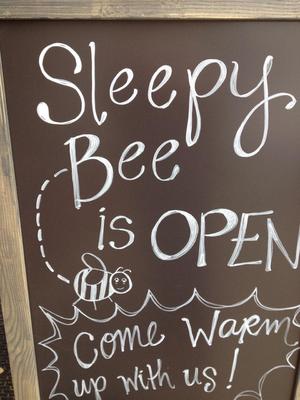 Sleepy
Bee
is OPEN
come warm
up with us!